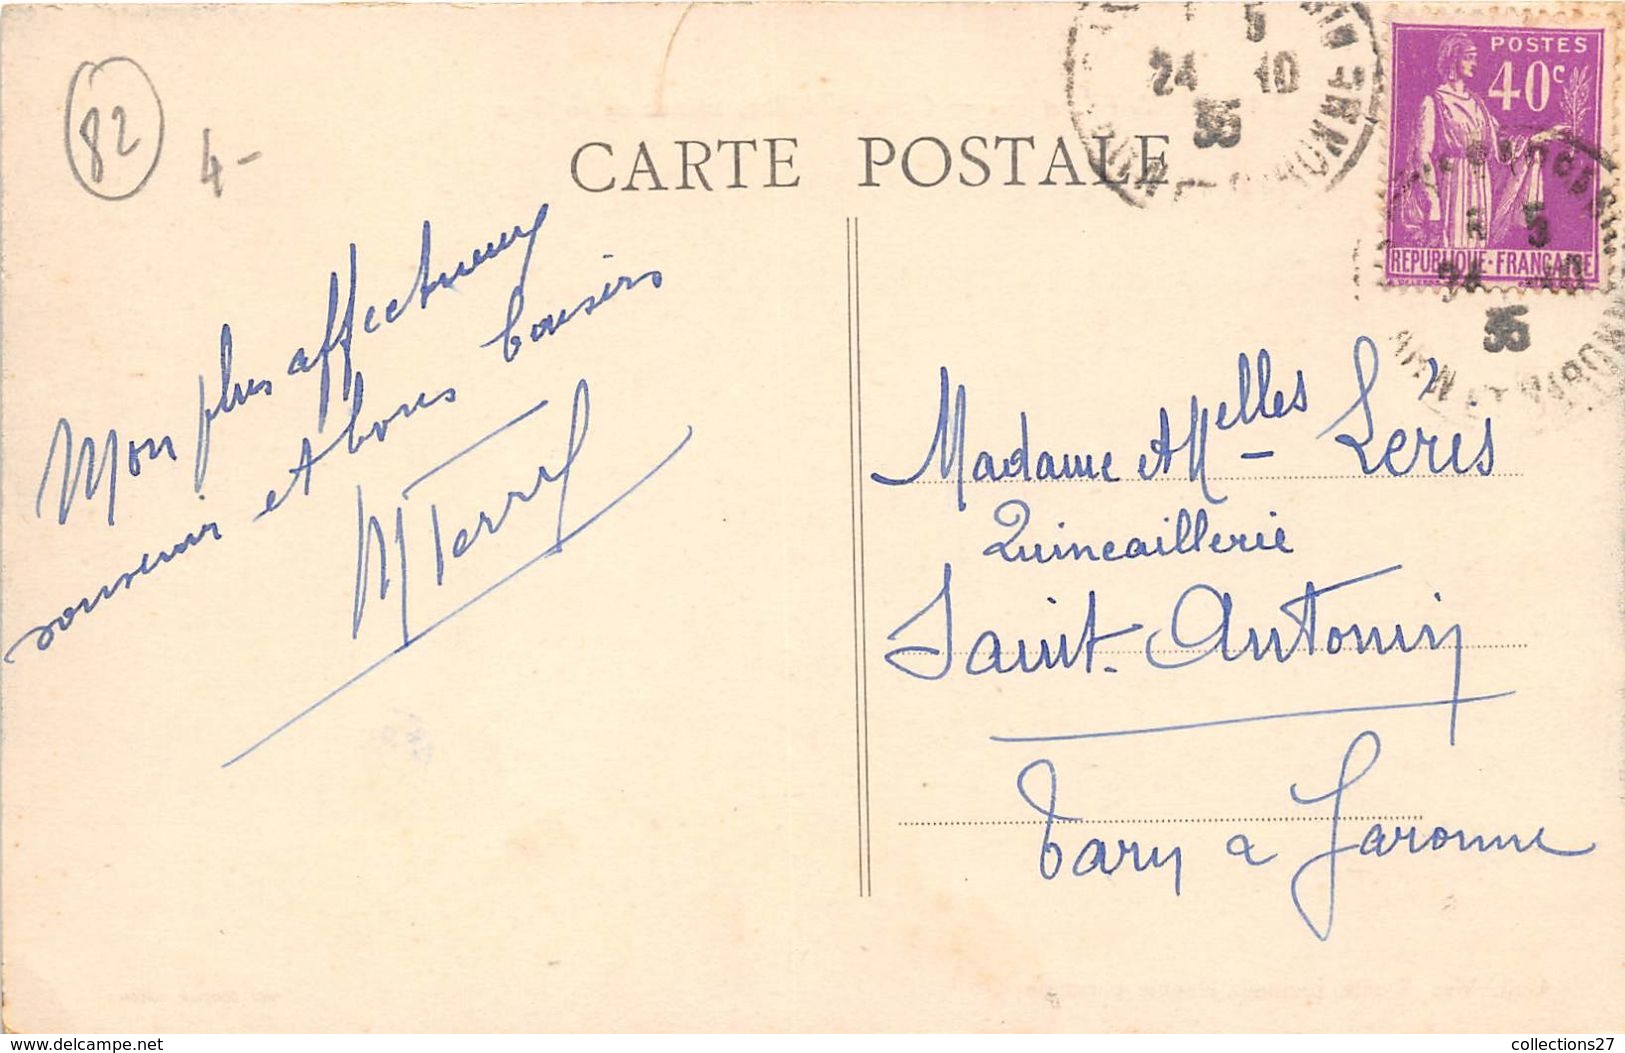 82
4-
CARTE POSTALE
POSTES
40c
REPUBLIQUE·FRANÇAISE
5
24 10
35
5
24 10
35
Mon plus affectueux
souvenir et bons baisers
M Terral
Madame et Melles Leris
Quincaillerie
Saint-Antonin
Tarn & Garonne
delcampe.net
collections27